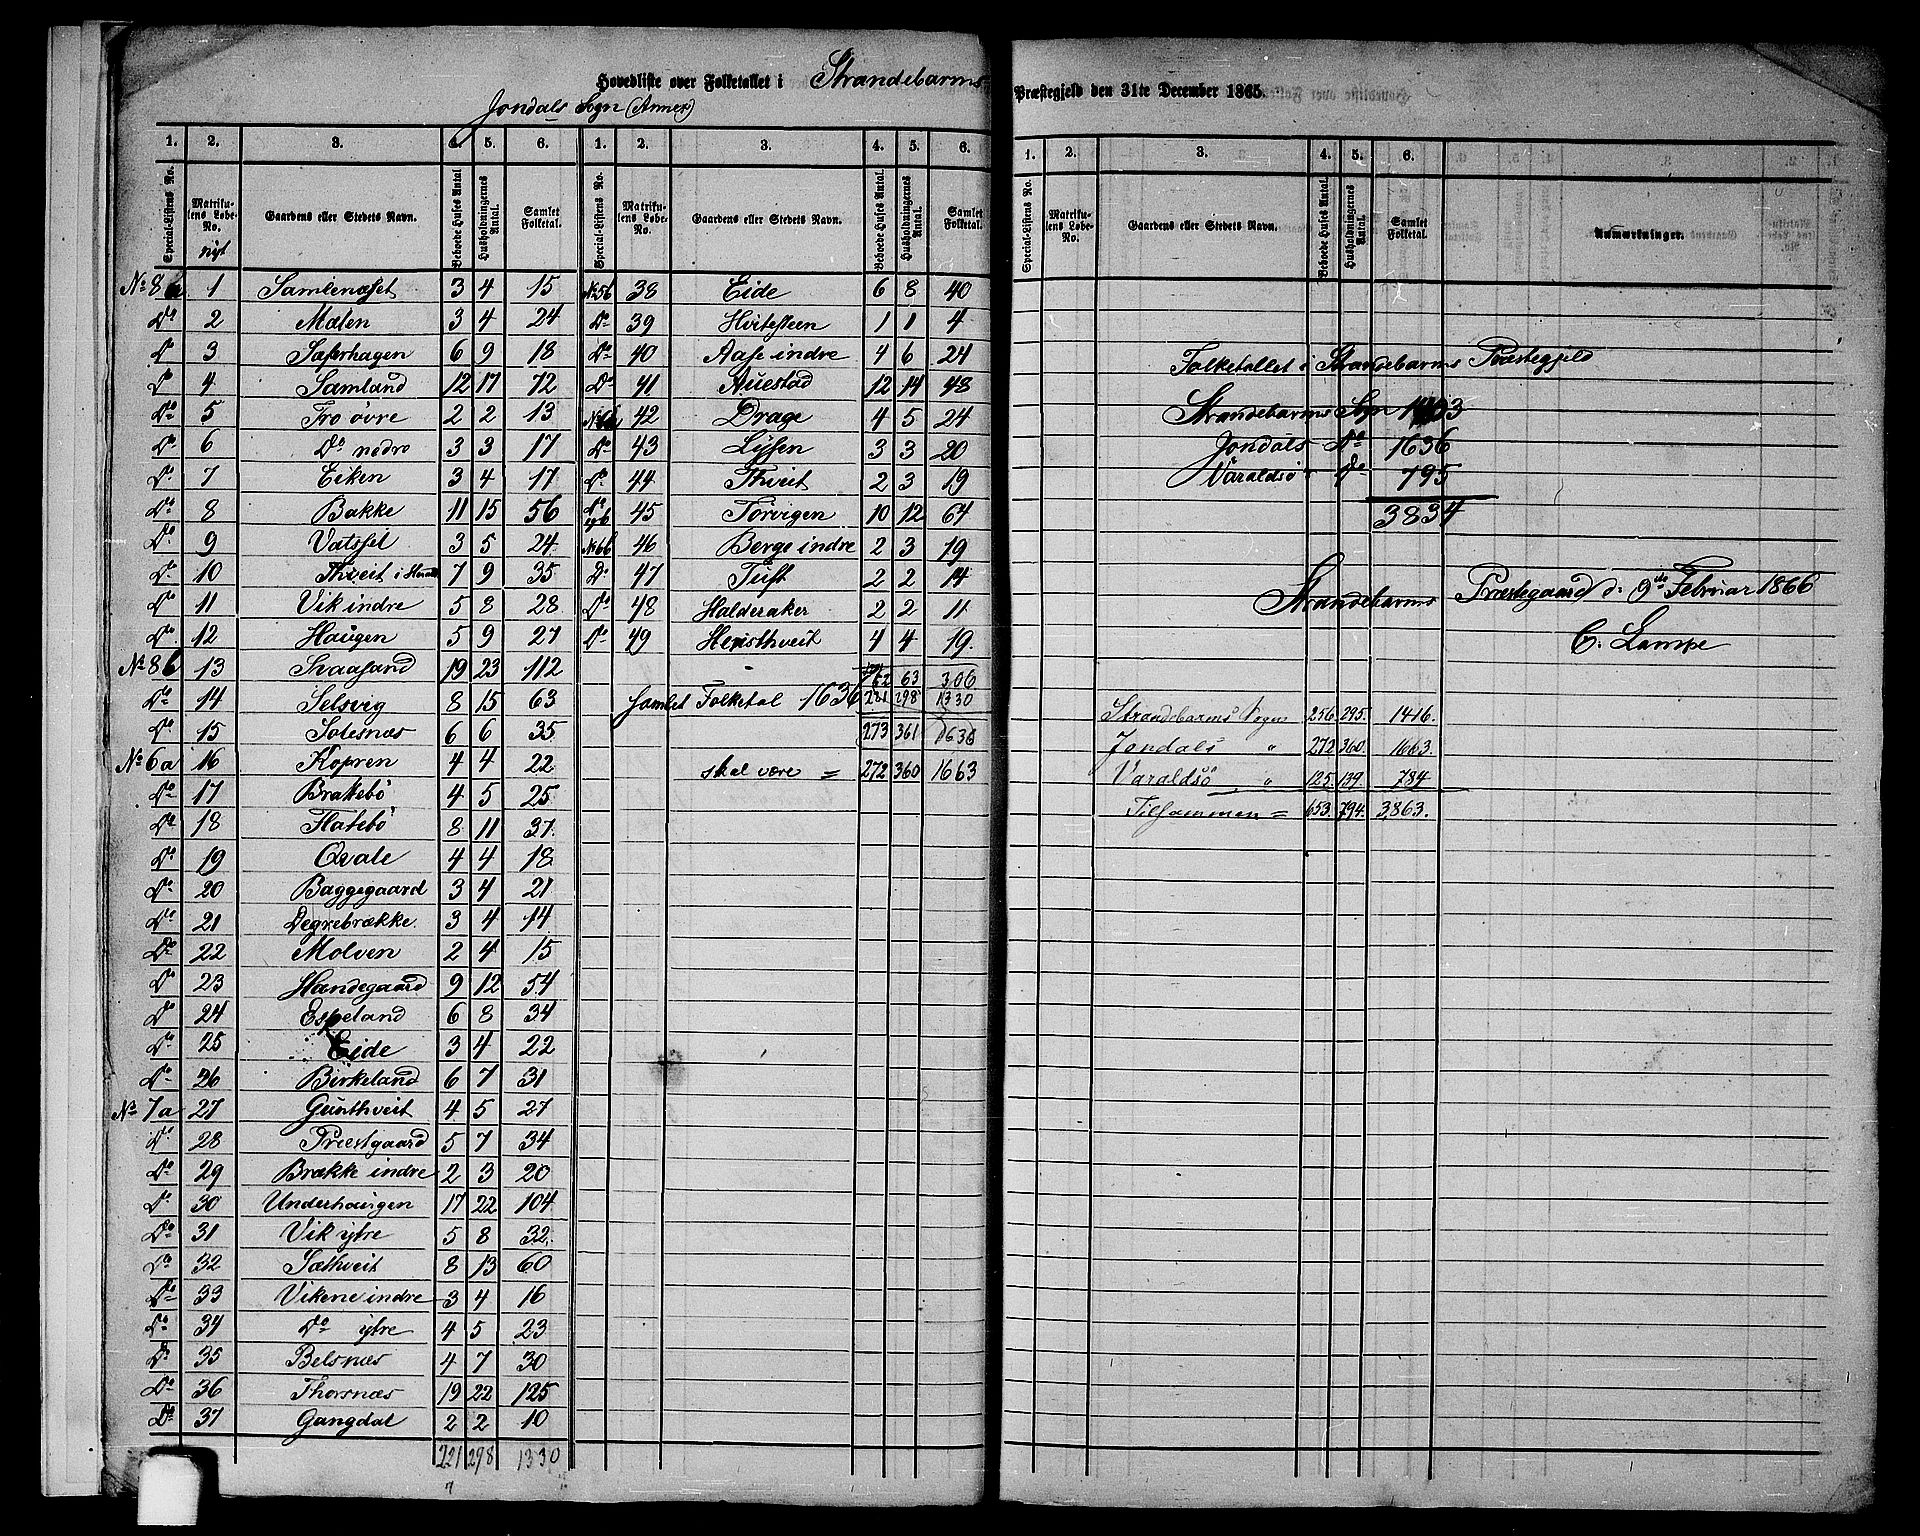 Hovedliste over Folketallet i Strandebarms Præstegjeld den 31te December 1865.
Jondals Sogn (Annex)
1. 2. 3. 4. 5. 6. 1. 2. 3. 4. 5. 6.
Special-Listens No. Matrikulens Løbe-No. nyt Gaardens eller Stedets Navn. Beboede Huses Antal Husholdningernes Antal. Samlet Folketal. Special-Listens No. Matrikulens Løbe-No. Gaardens eller Stedets Navn. Beboede Huses Antal. Husholdningernes Antal. Samlet Folketal.
No 8a 1 Samlenæset 3 4 15
Do 2 Mælen 3 4 24
Do 3 18 6 9
Do 4 Samland 12 17 72
Do 5 Tro øvre 2 2 13
Do 6 Do nedre 3 3 17
Do 7 Eiken 3 4 17
Do 8 Bakke 11 15 56
Do 9 Vatssel 3 5 24
Do 10 Thveit i 7 9 35
Do 11 Vik indre 5 8 28
Do 12 Haugen 5 9 27
No 8b 13 Svaasand 19 23 112
Do 14 Selsvig 8 15 63
Do 15 Solesnæs 6 6 35
No 6a 16 Kopren 4 4 22
Do 17 Brattebö 4 5 25
Do 18 Flatebö 8 11 37
Do 19 Qvale 4 4 18
Do 20 Baggegaard 3 4 21
Do 21 Degrebrække 3 4 14
Do 22 Molven 2 4 15
Do 23 Handegaard 9 12 54
Do 24 Espeland 6 8 34
Do 25 Eide 3 4 22
Do 26 Birkeland 6 7 31
No 7a 27 Gunthveit 4 5 27
Do 28 Præstgaard 5 7 34
Do 29 Brække indre 2 3 20
Do 30 Underhaugen 17 22 104
Do 31 Vik ytre 5 8 32
Do 32 Sæthveit 8 13 60
Do 33 Vikene indre 3 4 16
Do 34 Do ytre 4 5 23
Do 35 Belsnæs 4 7 30
Do 36 Thorsnæs 19 22 125
Do 37 Gangdal 2 2 10
221 298 1330
38 Eide 6 8 40
Do 39 Hvitesteen 1 1 4
Do 40 Aase indre 4 6 24
Do 41 Auestad 12 14 48
42 Drage 4 5 24
Do 43 Lissen 3 3 20
Do 44 Thveit 2 3 19
Do 45 Torvigen 10 12 64
No 6b 46 Berge indre 2 3 19
Do 47 Tuft 2 2 14
Do 48 Halderaker 2 2 11
Do 49 Heisthveit 4 4 19.
62 63 306
Samlet Folketal 1636 221 298 1330
273 361 1636
skal være = 272 360 1663
1. 2. 3. 4. 5. 6.
Special-Listens No. Matrikulens Løbe-No. Gaardens eller Stedets Navn. Beboede Huses Antal. Husholdningernes Antal. Samlet Folketal. Anmærkninger.
Folketallet i Strandebarms Præstegjeld
Strandebarms Sogn 1403
Jondals Do 1636
Varaldsö Do 795
3834
Strandebarms Præstegaard d. 9de Februar 1866
C. Lampe
Strandebarms Sogn 256. 295. 1416.
Jondals " 272 360. 1663.
Varaldsö " 125. 139. 784
Tilsammen = 653. 794. 3863.